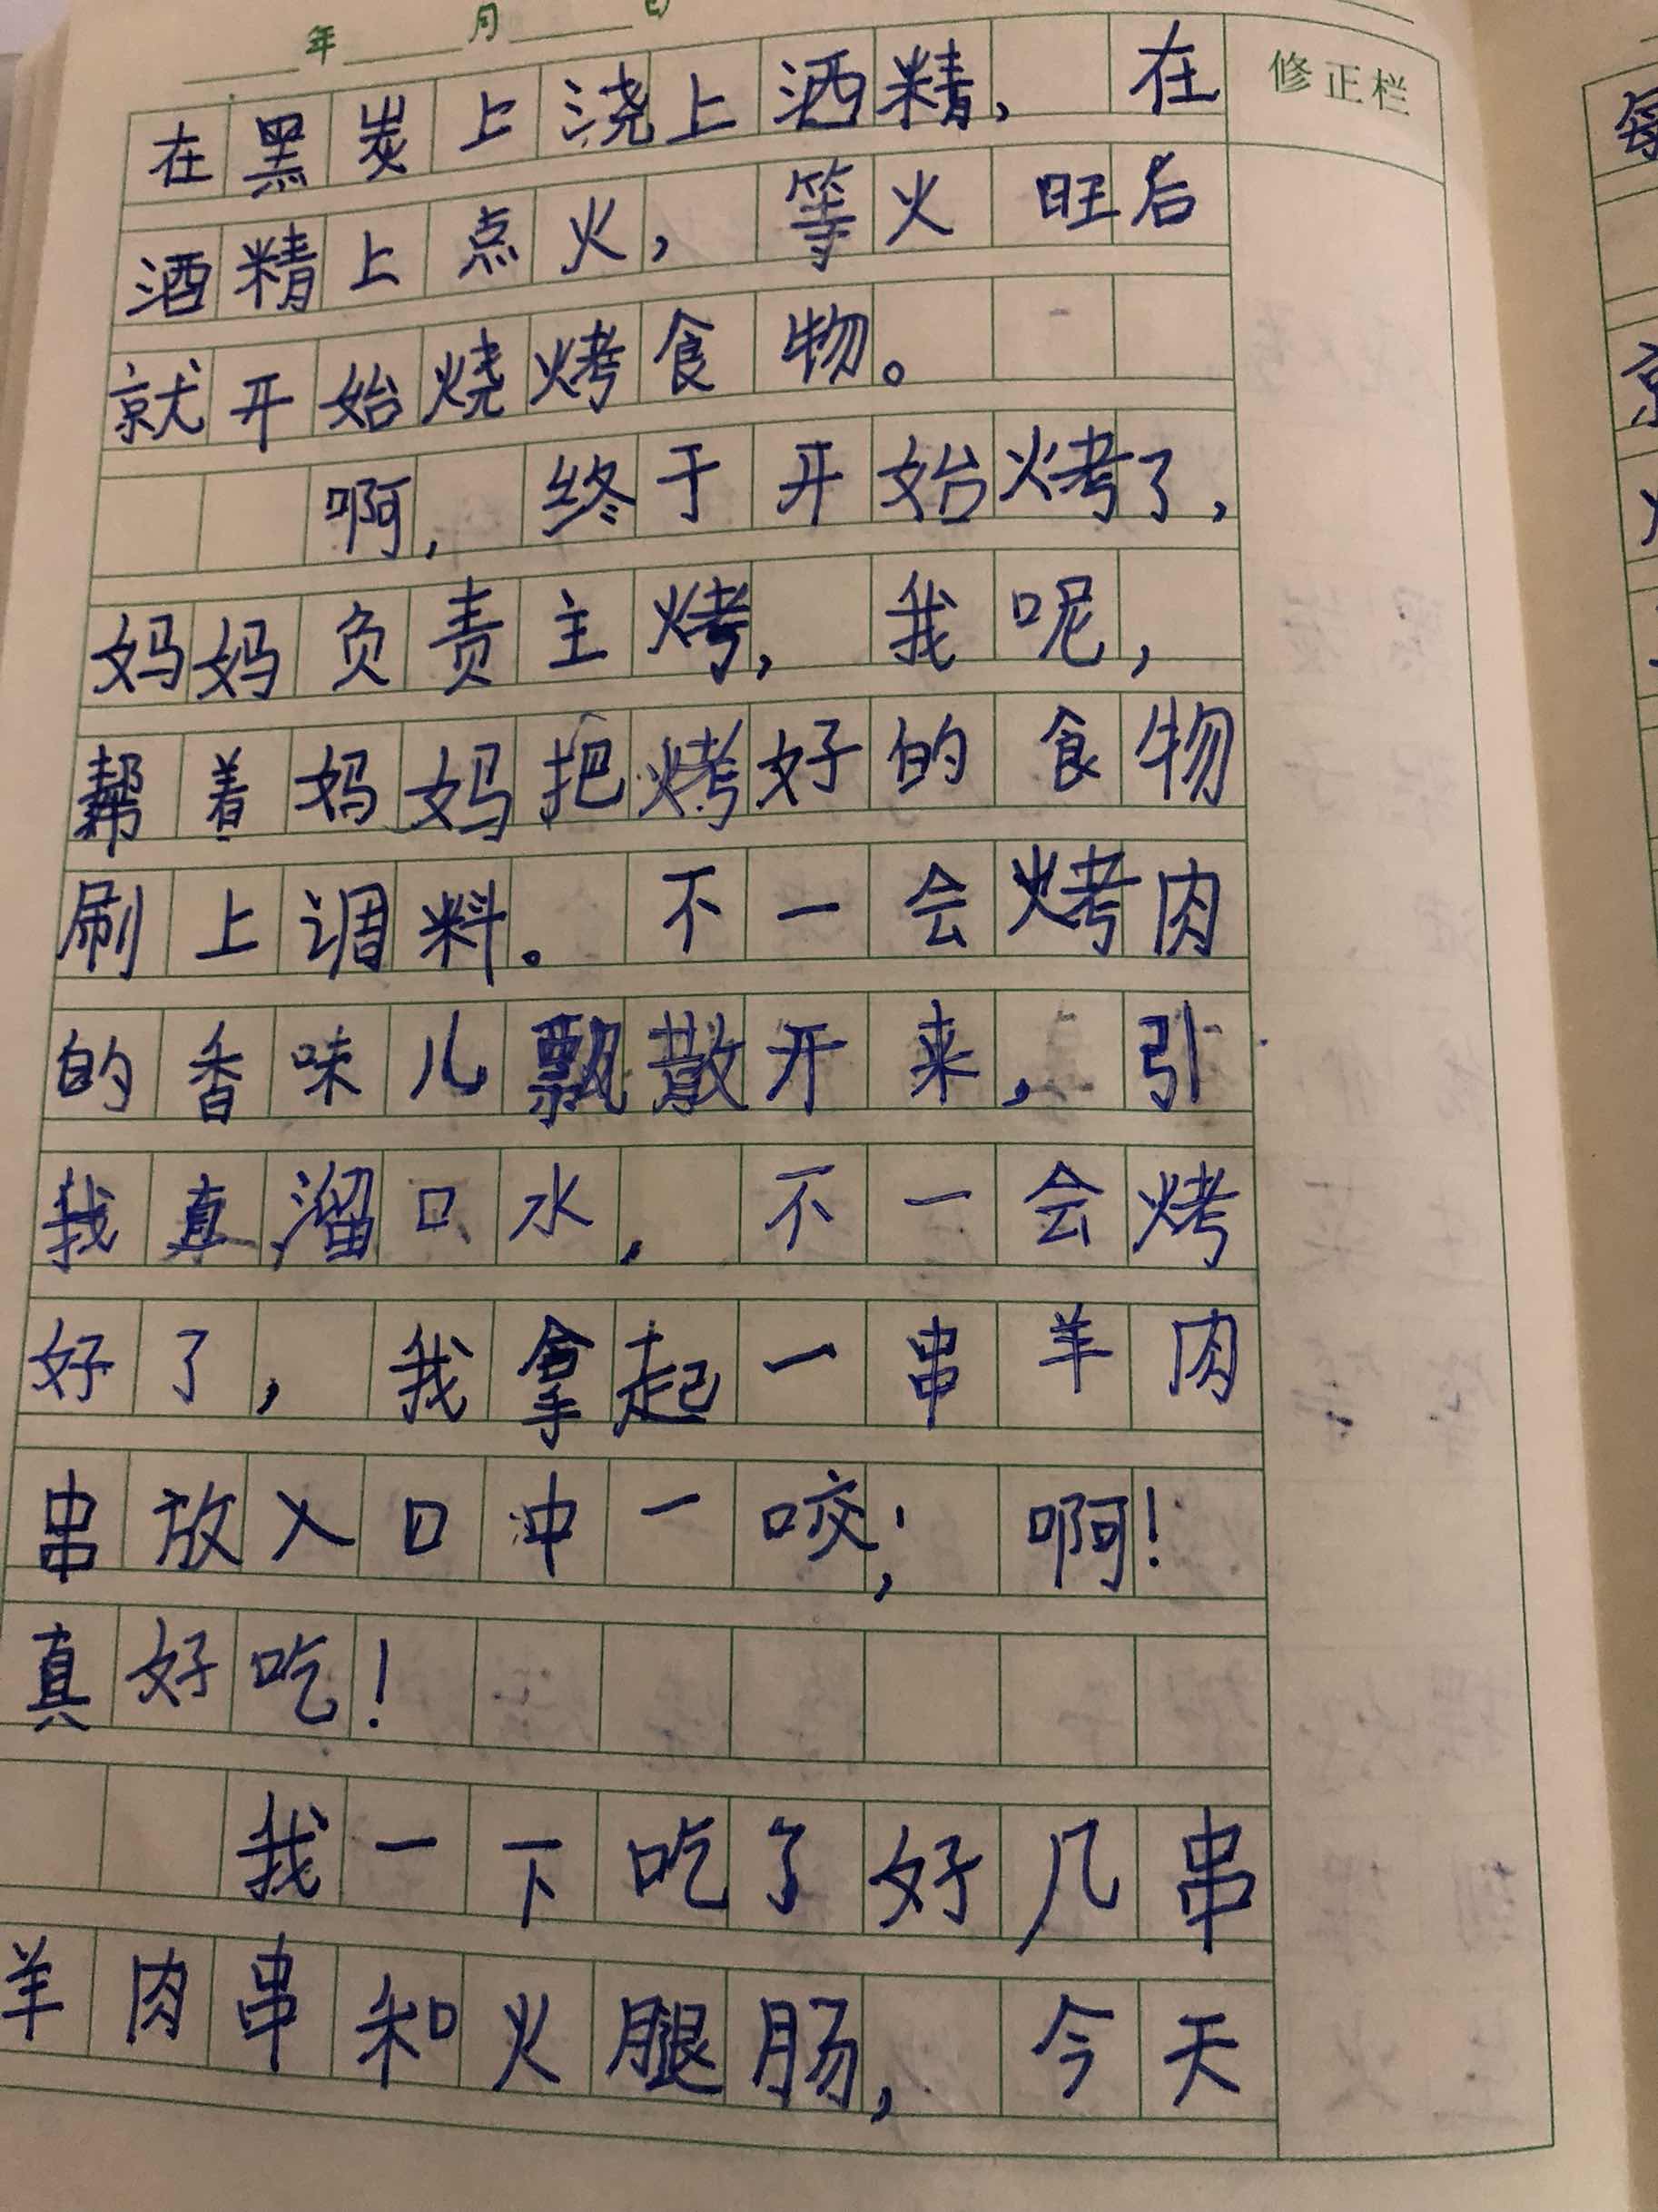 年 月 日
修正栏
在黑炭上浇上酒精，在
酒精上点火，等火旺后
就开始烧烤食物。
啊，终于开始烤了，
妈妈负责主烤，我呢，
帮着妈妈把烤好的食物
刷上调料。不一会烤肉
的香味儿飘散开来，引
我直溜口水，不一会烤
好了，我拿起一串羊肉
串放入口中一咬，啊！
真好吃！
我一下吃了好几串
羊肉串和火腿肠，今天